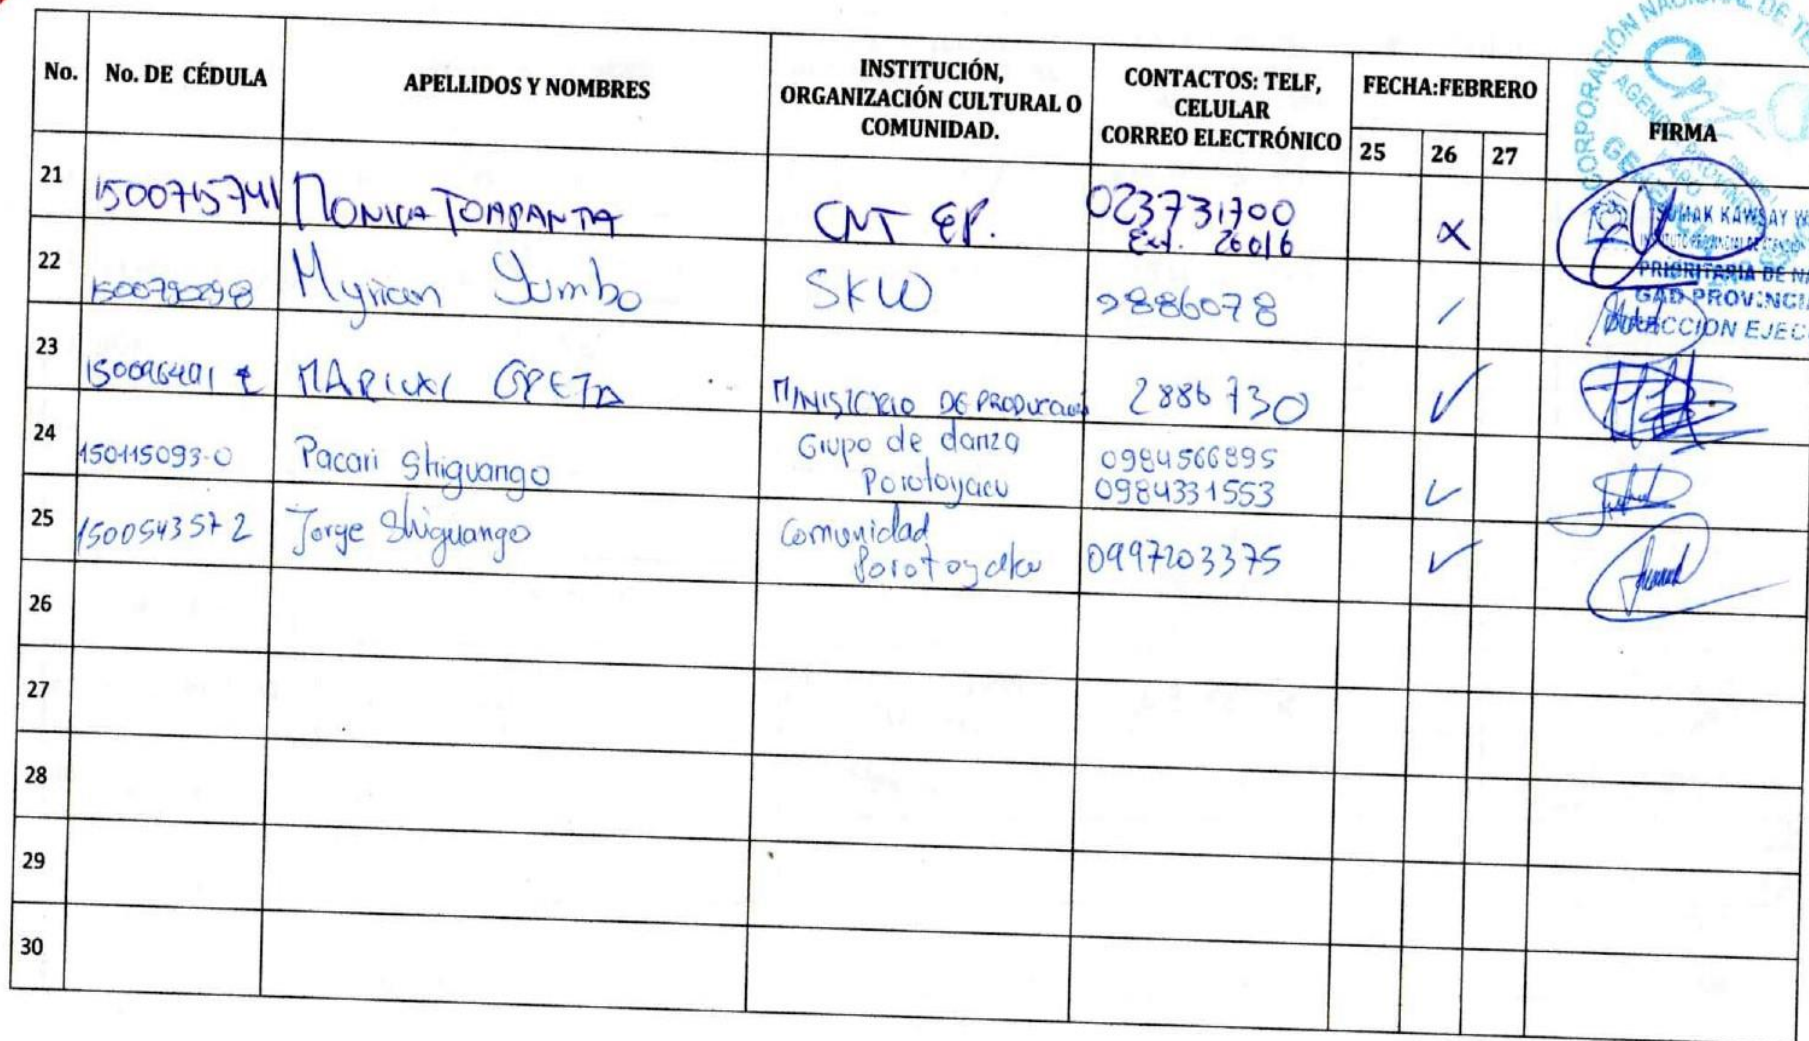 No. No. DE CÉDULA APELLIDOS Y NOMBRES INSTITUCIÓN, ORGANIZACIÓN CULTURAL O COMUNIDAD. CONTACTOS: TELF, CELULAR CORREO ELECTRÓNICO FECHA:FEBRERO 25 26 27 FIRMA
21 1500715741 MONICA TOAPANTA CNT EP. 023731700 Ext. 26016 x
22 Myrian Yumbo SKW 2886078 /
23 MARIUXI MINISTERIO DE PRODUCCION 2886730 ✓
24 150115093-0 Pacari Shiguango Grupo de danza Porotoyacu 0984566895 0984331553 ✓
25 150054357 2 Jorge Shiguango Comunidad Porotoyaku 0997203375 ✓
26
27
28
29
30
CORPORACIÓN NACIONAL DE
cnt
SUMAK KAWSAY W
PRIORITARIA DE NA
GAD PROVINCI
DIRECCION EJEC